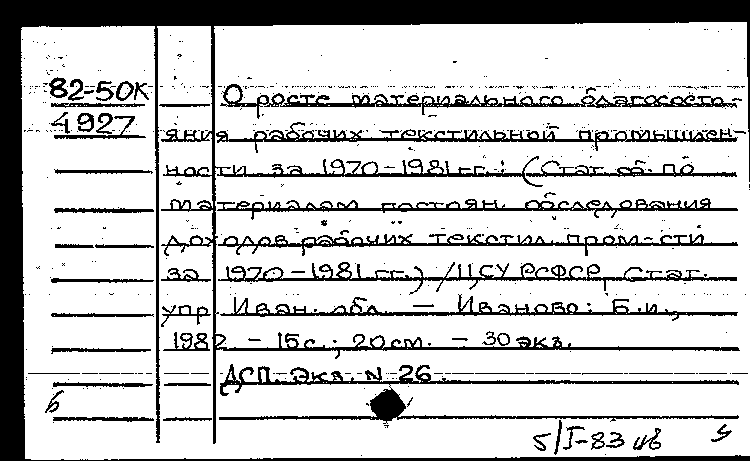 82-50К
4927
О росте материального благосостоя-
яния рабочих текстильной промышлен-
ности за 1970-1981 гг.: (Стат. сб. по
материалам постоян. обследования
доходов рабочих текстил. пром-сти
за 1970-1981 гг.) /ЦСУ РСФСР, Стат.
упр. Иван. обл. — Иваново: Б.и.,
1982 - 15 с.; 20 см. - 30 экз.
ДСП. Экз. N 26.
5/I-83